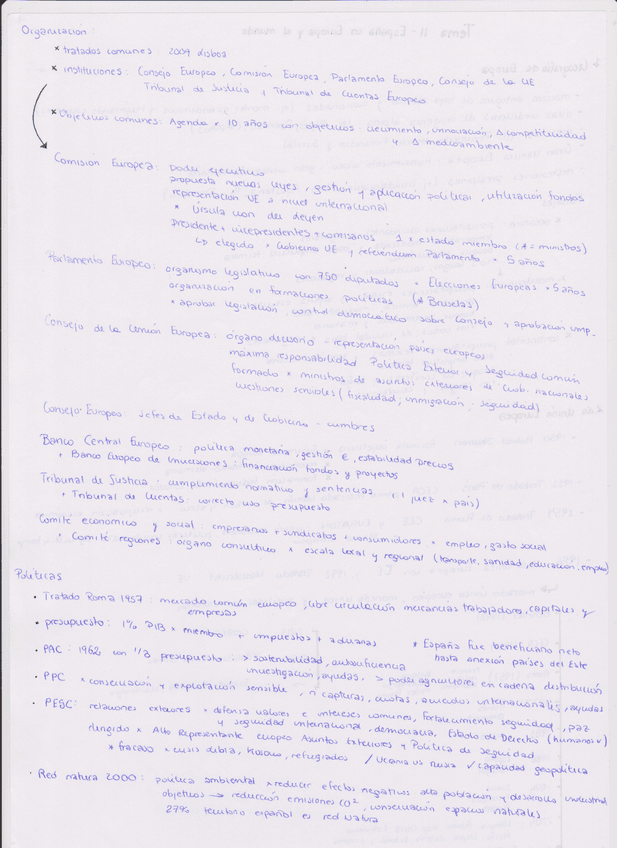 Organización
* tratados comunes 2009 Lisboa
* instituciones: Consejo Europeo, Comisión Europea, Parlamento Europeo, Consejo de la UE
Tribunal de Justicia y Tribunal de Cuentas Europeo
* Objetivos comunes: Agenda x 10 años con objetivos crecimiento, innovación, Δ competitividad
y Δ medioambiente
Comisión Europea: poder ejecutivo
propuesta nuevas leyes, gestión y aplicación políticas, utilización fondos
representación UE a nivel internacional
* Úrsula von der Leyen
presidente + vicepresidentes + comisarios 1 x estado miembro (A = ministros)
↳ elegido x Gobierno UE y referendum Parlamento x 5 años
Parlamento Europeo: organismo legislativo con 750 diputados x Elecciones Europeas x 5 años
organización en formaciones políticas (* Bruselas)
* aprobar legislación, control democrático sobre Consejo y aprobación
Consejo de la Unión Europea: órgano decisorio - representación países europeos
máxima responsabilidad Política Exterior y Seguridad Común
formado x ministros de asuntos exteriores de Gob. nacionales
cuestiones sensibles (fiscalidad, inmigración, seguridad)
Consejo Europeo: Jefes de Estado y de Gobierno - cumbres
Banco Central Europeo: política monetaria, gestión €, estabilidad precios
+ Banco Europeo de Inversiones: financiación fondos y proyectos
Tribunal de Justicia: cumplimiento normativo y sentencias (1 juez x país)
+ Tribunal de Cuentas: correcto uso presupuesto
Comité económico y social: empresarios + sindicatos + consumidores x empleo, gasto social
+ Comité regiones: órgano consultivo x escala local y regional (transporte, sanidad, educación, empleo)
Políticas
• Tratado Roma 1957: mercado común europeo, libre circulación mercancías trabajadores, capitales y
empresas
• presupuesto: 1% PIB x miembro + impuestos + aduanas * España fue beneficiario neto
hasta anexión países del Este
• PAC: 1962 con 1/3 presupuesto: > sostenibilidad, autosuficiencia
investigación, ayudas, > poder agricultores en cadena distribución
• PPC x conservación y explotación sensible, n capturas, cuotas, acuerdos internacionales, ayudas
• PESC: relaciones exteriores x defensa valores e intereses comunes, fortalecimiento seguridad, paz
y seguridad internacional, democracia, Estado de Derecho (humanos v)
dirigido x Alto Representante europeo Asuntos Exteriores y Política de Seguridad
* fracaso x crisis Libia, Kosovo, refugiados / Ucrania vs Rusia ✓ capacidad geopolítica
• Red natura 2000: política ambiental x reducir efectos negativos alta población y desarrollo industrial
objetivos → reducción emisiones CO², conservación espacios naturales
27% territorio español es red Natura